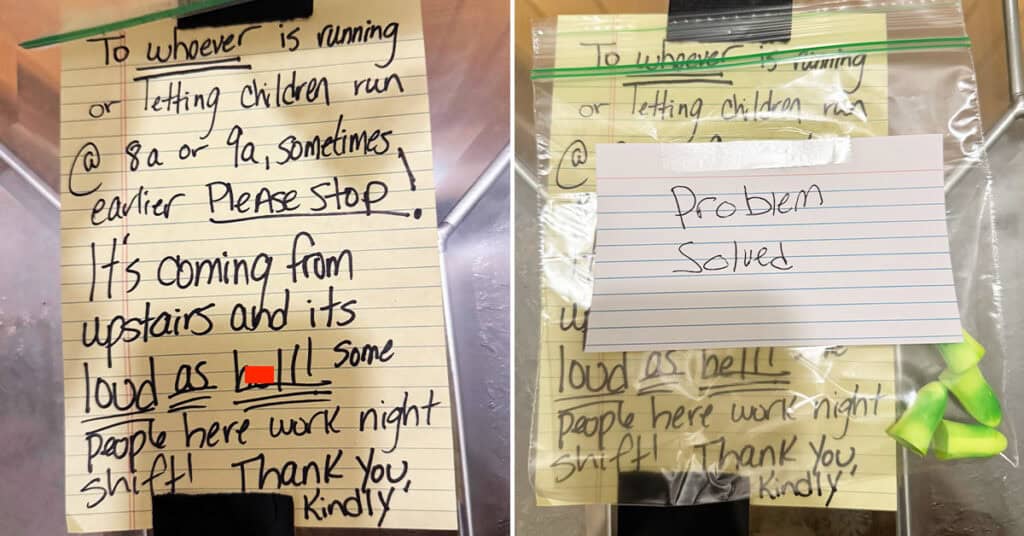 To whoever is running
or letting children run
@ 8a or 9a, sometimes
earlier Please Stop!
It's coming from
upstairs and its
loud as hell! some
people here work night
shift! Thank You,
Kindly
To whoever is running
or letting children run
@
Problem
Solved
loud as hell!
people here work night
shift! Thank You,
Kindly